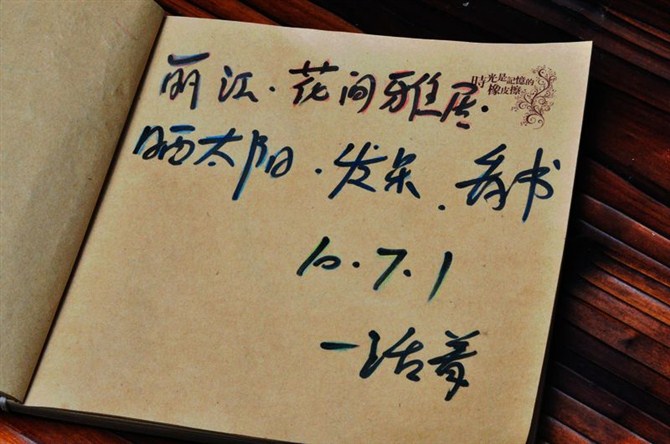 時光是記憶的
橡皮擦
丽江·花间雅居·
晒太阳·发呆·看书
10·7·1
一活着